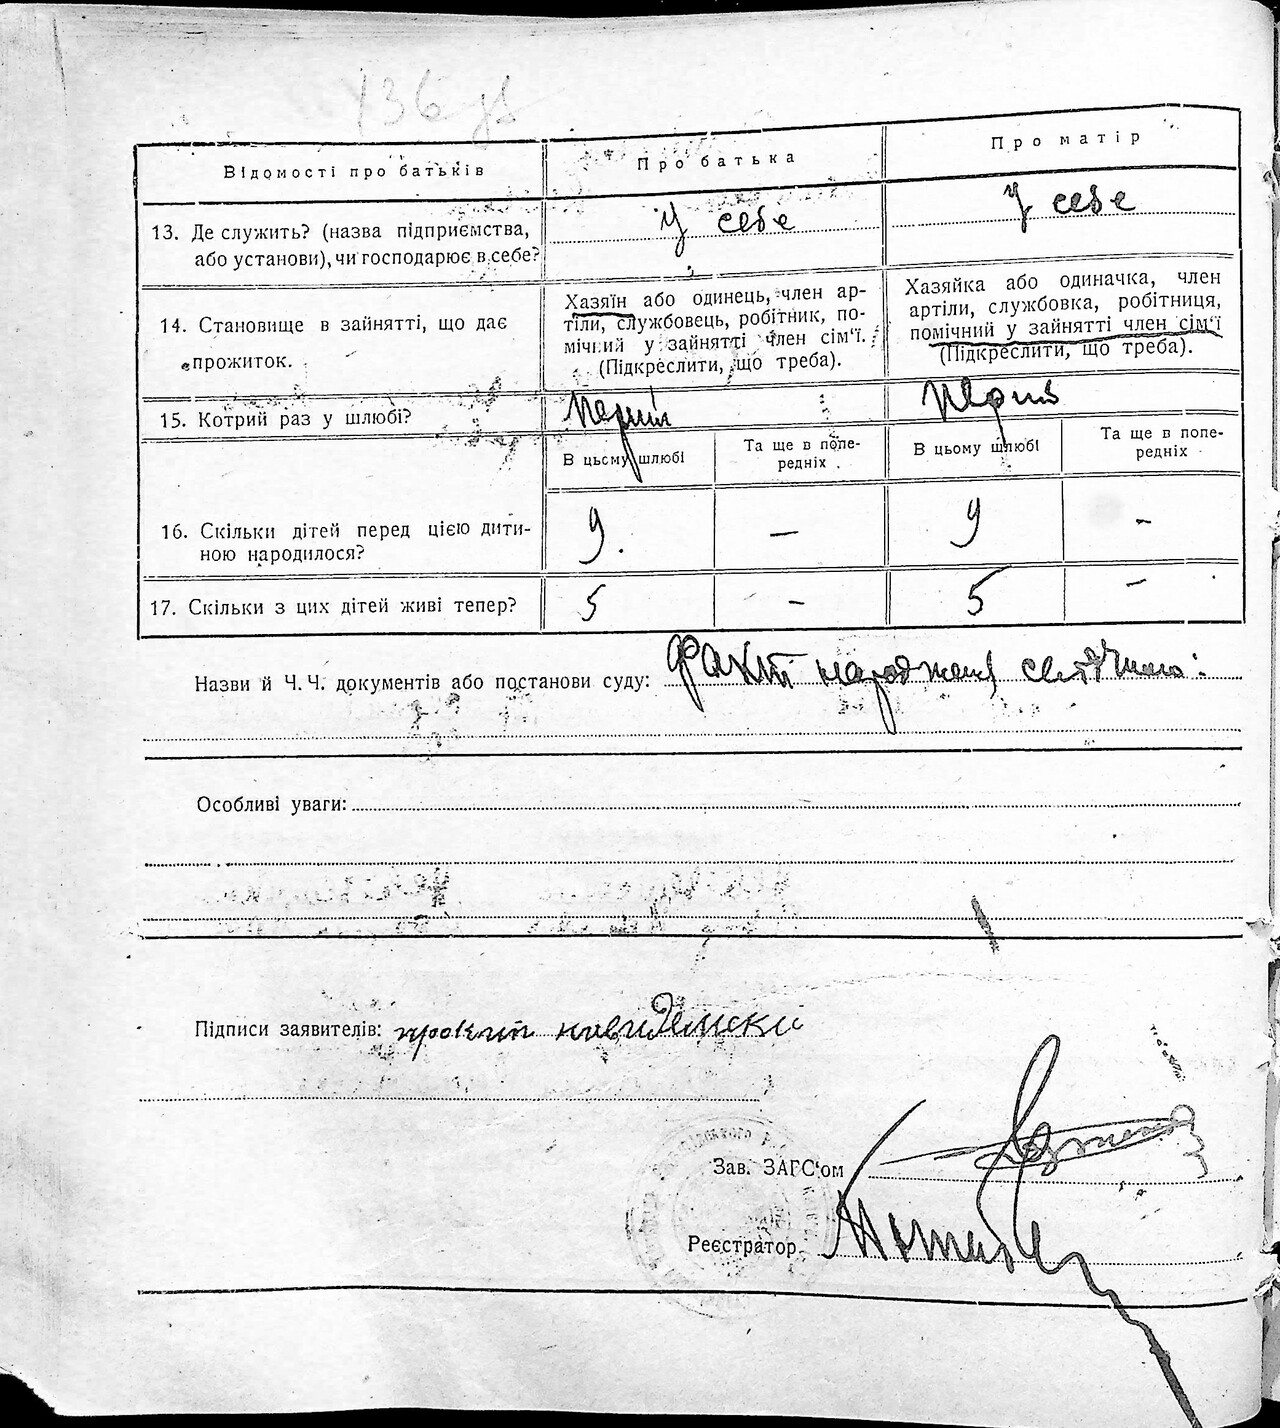 136 зв
Відомості про батьків
Про батька
Про матір
13. Де служить? (назва підприємства,
або установи), чи господарює в себе?
У себе
У себе
14. Становище в зайнятті, що дає
прожиток.
Хазяїн або одинець, член ар-
тіли, службовець, робітник, по-
мічний у зайнятті член сім'ї.
(Підкреслити, що треба).
Хазяйка або одиначка, член
артіли, службовка, робітниця,
помічний у зайнятті член сім'ї
(Підкреслити, що треба).
15. Котрий раз у шлюбі?
Перший
Перший
В цьому шлюбі
Та ще в попе-
редніх
В цьому шлюбі
Та ще в попе-
редніх
16. Скільки дітей перед цією дити-
ною народилося?
9.
—
9
-
17. Скільки з цих дітей живі тепер?
5
-
5
-
Назви й Ч.Ч. документів або постанови суду: Факт народженя
Особливі уваги:
Підписи заявителів:
Зав. ЗАГС'ом
Реєстратор